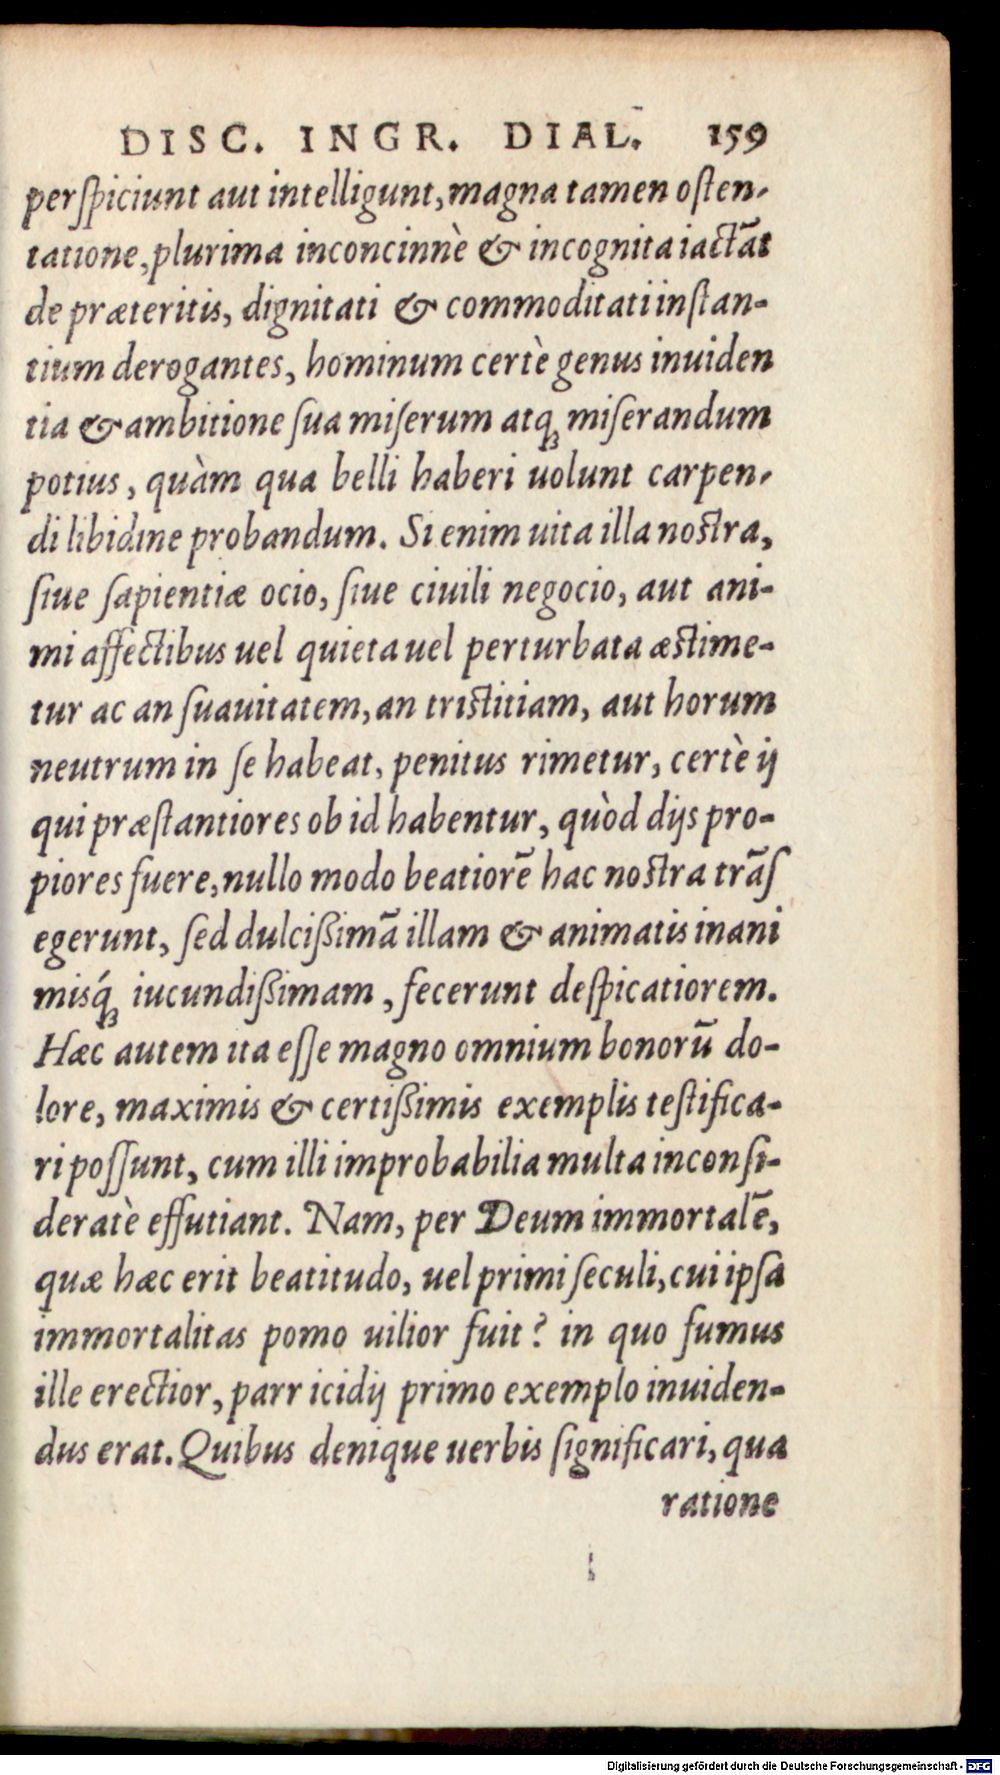 DISC. INGR. DIAL. 159
perſpiciunt aut intelligunt, magna tamen oſten-
tatione, plurima inconcinnè & incognita iactāt
de præteritis, dignitati & commoditati inſtan-
tium derogantes, hominum certè genus inuiden
tia & ambitione ſua miſerum atqꝫ miſerandum
potius, quàm qua belli haberi uolunt carpen-
di libidine probandum. Si enim uita illa noſtra,
ſiue ſapientiæ ocio, ſiue ciuili negocio, aut ani-
mi affectibus uel quieta uel perturbata æſtime-
tur ac an ſuauitatem, an triſtitiam, aut horum
neutrum in ſe habeat, penitus rimetur, certè ij
qui præſtantiores ob id habentur, quòd dijs pro-
piores fuere, nullo modo beatiorē hac noſtra trāſ
egerunt, ſed dulciſsimā illam & animatis inani
misq́ꝫ iucundiſsimam, fecerunt deſpicatiorem.
Hæc autem ita eſſe magno omnium bonorū do-
lore, maximis & certiſsimis exemplis teſtifica-
ri poſſunt, cum illi improbabilia multa inconſi-
deratè effutiant. Nam, per Deum immortalē,
quæ hæc erit beatitudo, uel primi ſeculi, cui ipſa
immortalitas pomo uilior fuit? in quo fumus
ille erectior, parricidij primo exemplo inuiden-
dus erat. Quibus denique uerbis ſignificari, qua
ratione
Digitalisierung gefördert durch die Deutsche Forschungsgemeinschaft - DFG